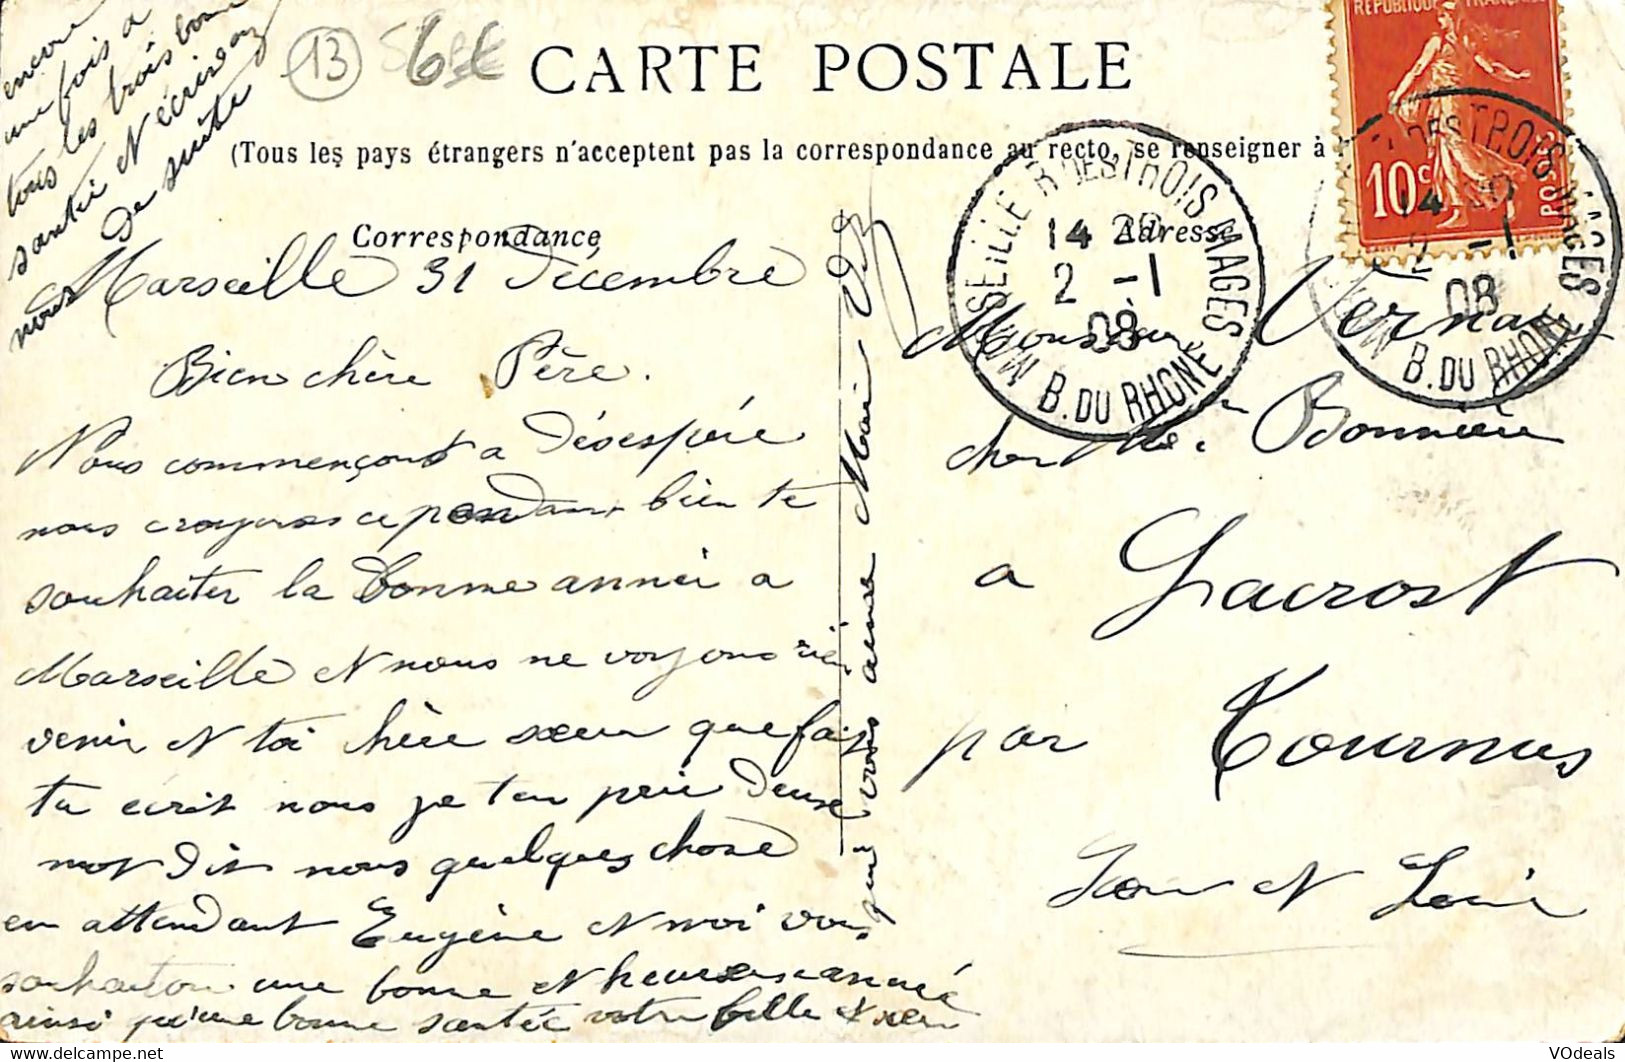 encore
une fois a
tous les trois bonne
santé et écrivez
nous de suite
13
6€
CARTE POSTALE
(Tous les pays étrangers n'acceptent pas la correspondance au recto, se renseigner à
Correspondance
Adresse
REPUBLIQUE FRANÇAISE
10c
POSTES
MARSEILLE R. DES TROIS MAGES
14 20
2 -1
08
B. DU RHONE
DES TROIS MAGES
14 20
2 -1
08
B. DU RHONE
Marseille 31 Décembre
Bien chère Père.
Nous commençons a désespéré
nous croyons cependant bien te
souhaiter la bonne année a
Marseille et nous ne voyons rien
venir et toi chère sœur que fais
tu écrit nous je ten prie deuse
mot dit nous quelques chose
en attendant Eugène et moi vous
souhaiton une bonne et heureuse année
ainsi qu'une bonne santée votre fille &
qui vous aime
Monsieur Vernay
chez Mr Bonnière
a Lacrost
par Tournus
Saone et Loire
VOdeals